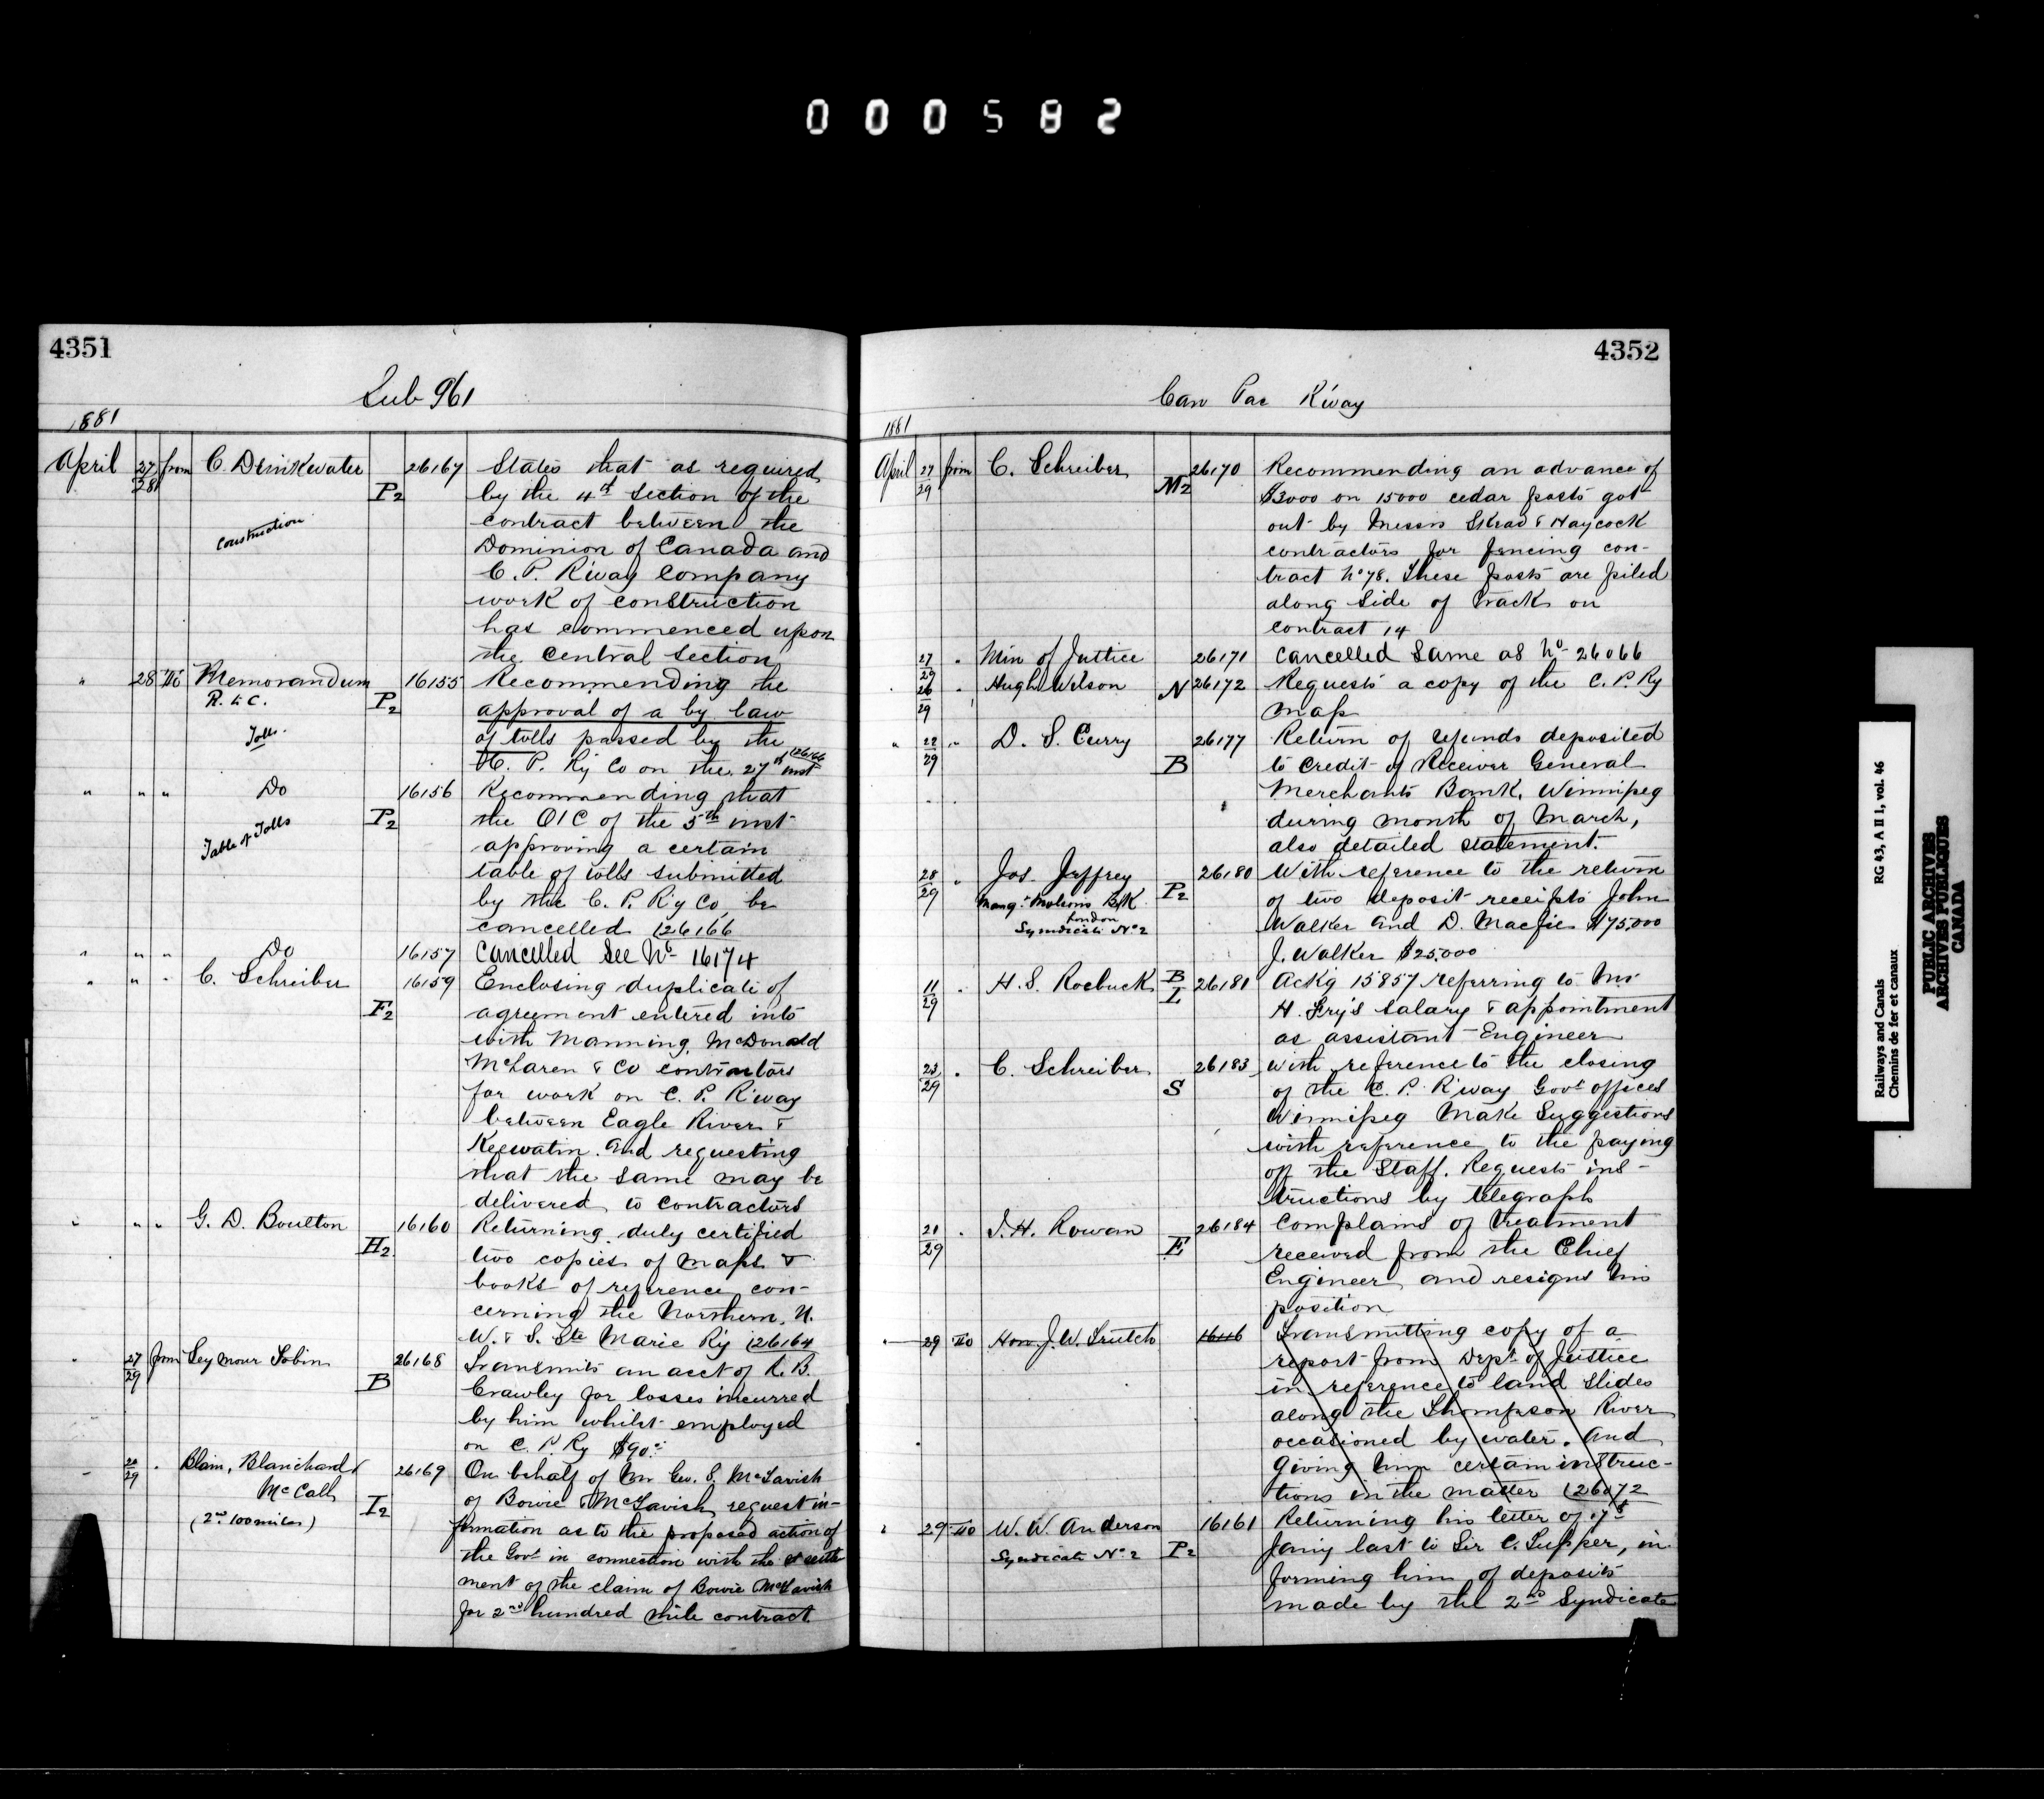 000582
4351
Sub 961
1881
April 27/28 from C. Drinkwater P2 26167 States that as required
by the 4th section of the
Construction contract between the
Dominion of Canada and
C. P. R'way Company
work of construction
has commenced upon
the Central Section
" 28 To Memorandum 16155 Recommending the
R. & C. P2 approval of a by law
Tolls of tolls passed by the
C. P. Ry Co on the 27th inst (26166
" " " Do 16156 Recommending that
P2 the OIC of the 5th inst
Table of Tolls approving a certain
table of tolls submitted
by the C. P. R'y Co, be
cancelled (26166
" " " Do 16157 Cancelled See No 16174
" " " C. Schreiber 16159 Enclosing duplicate of
F2 agreement entered into
with Manning, McDonald
McLaren & Co contractors
for work on C. P. R'way
between Eagle River &
Keewatin and requesting
that the same may be
delivered to contractors
" " " G. D. Boulton 16160 Returning duly certified
H2 two copies of maps &
books of reference con-
cerning the Northern, N.
W. & S. Ste Marie R'y (26164
" 27/29 from Seymour Tobin 26168 Transmits an acct of R. B.
B Crawley for losses incurred
by him whilst employed
on C. P. Ry $90.
" 26/29 " Blain, Blanchard & 26169 On behalf of Mr Geo. S. McTavish
McCall I2 of Bowie & McTavish, request in-
(2nd 100 miles) formation as to the proposed action of
the Govt in connection with the settle
ment of the claim of Bowie McTavish
for 2nd hundred mile contract
4352
Can Pac R'way
1881
April 27/29 from C. Schreiber M2 26170 Recommending an advance of
$3000 on 15000 cedar posts got
out by Messrs Skead & Haycock
contractors for fencing con-
tract No 78. These posts are piled
along side of track on
contract 14
27/29 " Min of Justice 26171 Cancelled Same as No 26066
26/29 " Hugh Wilson N 26172 Requests a copy of the C. P. Ry
map
" 22/29 " D. S. Curry 26177 Return of refunds deposited
B to Credit of Receiver General
Merchants Bank, Winnipeg
during month of March,
also detailed statement.
28/29 " Jos Jeffrey 26180 With reference to the return
Mangr Molsons B'k P2 of two deposit receipts John
London
Syndicate No 2 Walker and D. Macfie $75,000
J. Walker $25,000
11/29 " H. S. Roebuck B L 26181 Ackg 15857 referring to Mr
H. Fry's salary & appointment
as assistant Engineer
23/29 " C. Schreiber 26183 with reference to the closing
S of the C. P. R'way Govt offices
Winnipeg Make Suggestions
with reference to the paying
off the Staff. Requests ins-
tructions by telegraph
21/29 " J. H. Rowan 26184 Complains of treatment
E received from the Chief
Engineer and resigns his
position
" 29 To Hon J. W. Trutch 16116 Transmitting copy of a
report from Dept of Justice
in reference to land slides
along the Thompson River
occasioned by water. And
giving him certain instruc-
tions in the matter (26072
" 29 To W. W. Anderson 16161 Returning his letter of 17th
Syndicate No 2 P2 Jany last to Sir C. Tupper, in
forming him of deposits
made by the 2nd Syndicate
Railways and Canals RG 43, A II 1, vol. 46
Chemins de fer et canaux
PUBLIC ARCHIVES
ARCHIVES PUBLIQUES
CANADA